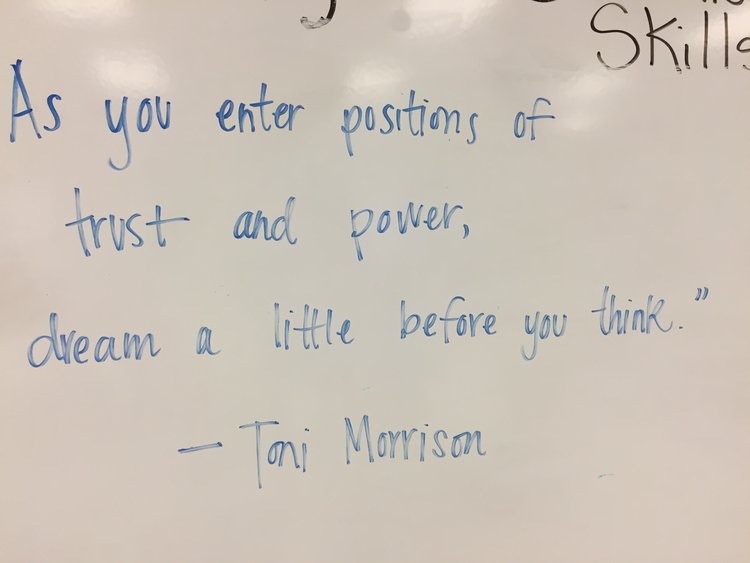 Skills
As you enter positions of
trust and power,
dream a little before you think."
— Toni Morrison